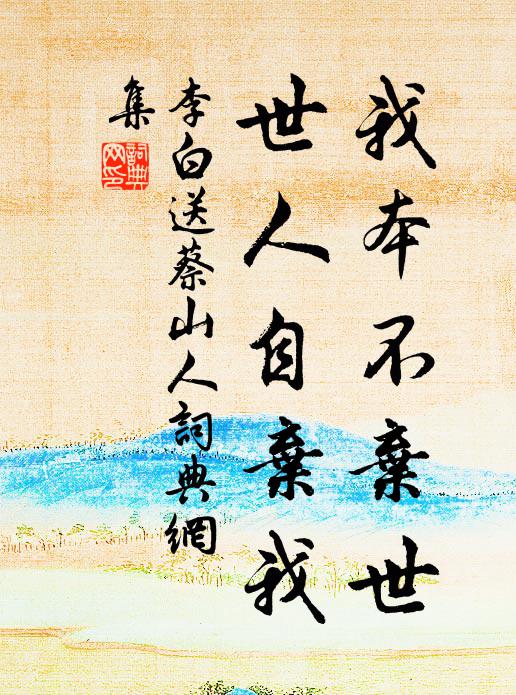 我本不棄世
世人自棄我
李白送蔡山人詞典網
集
詞典
网印